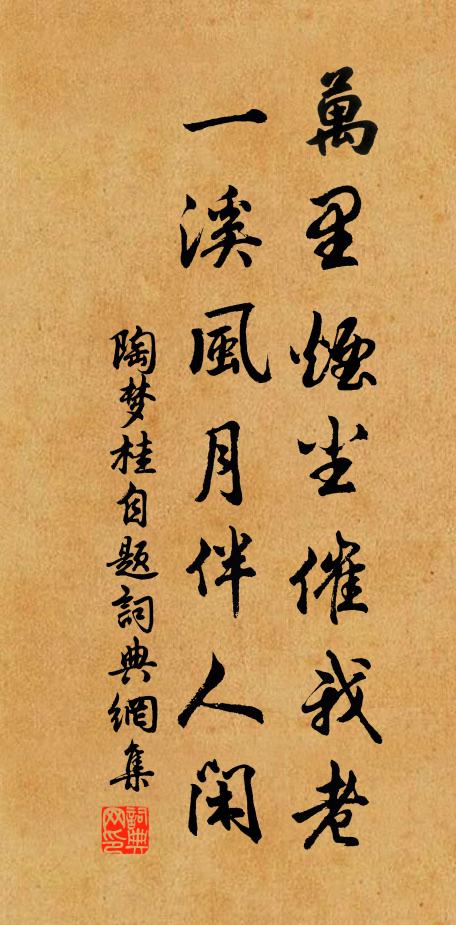 萬里煙塵催我老
一溪風月伴人閑
陶梦桂自题詞典網集
詞典网印